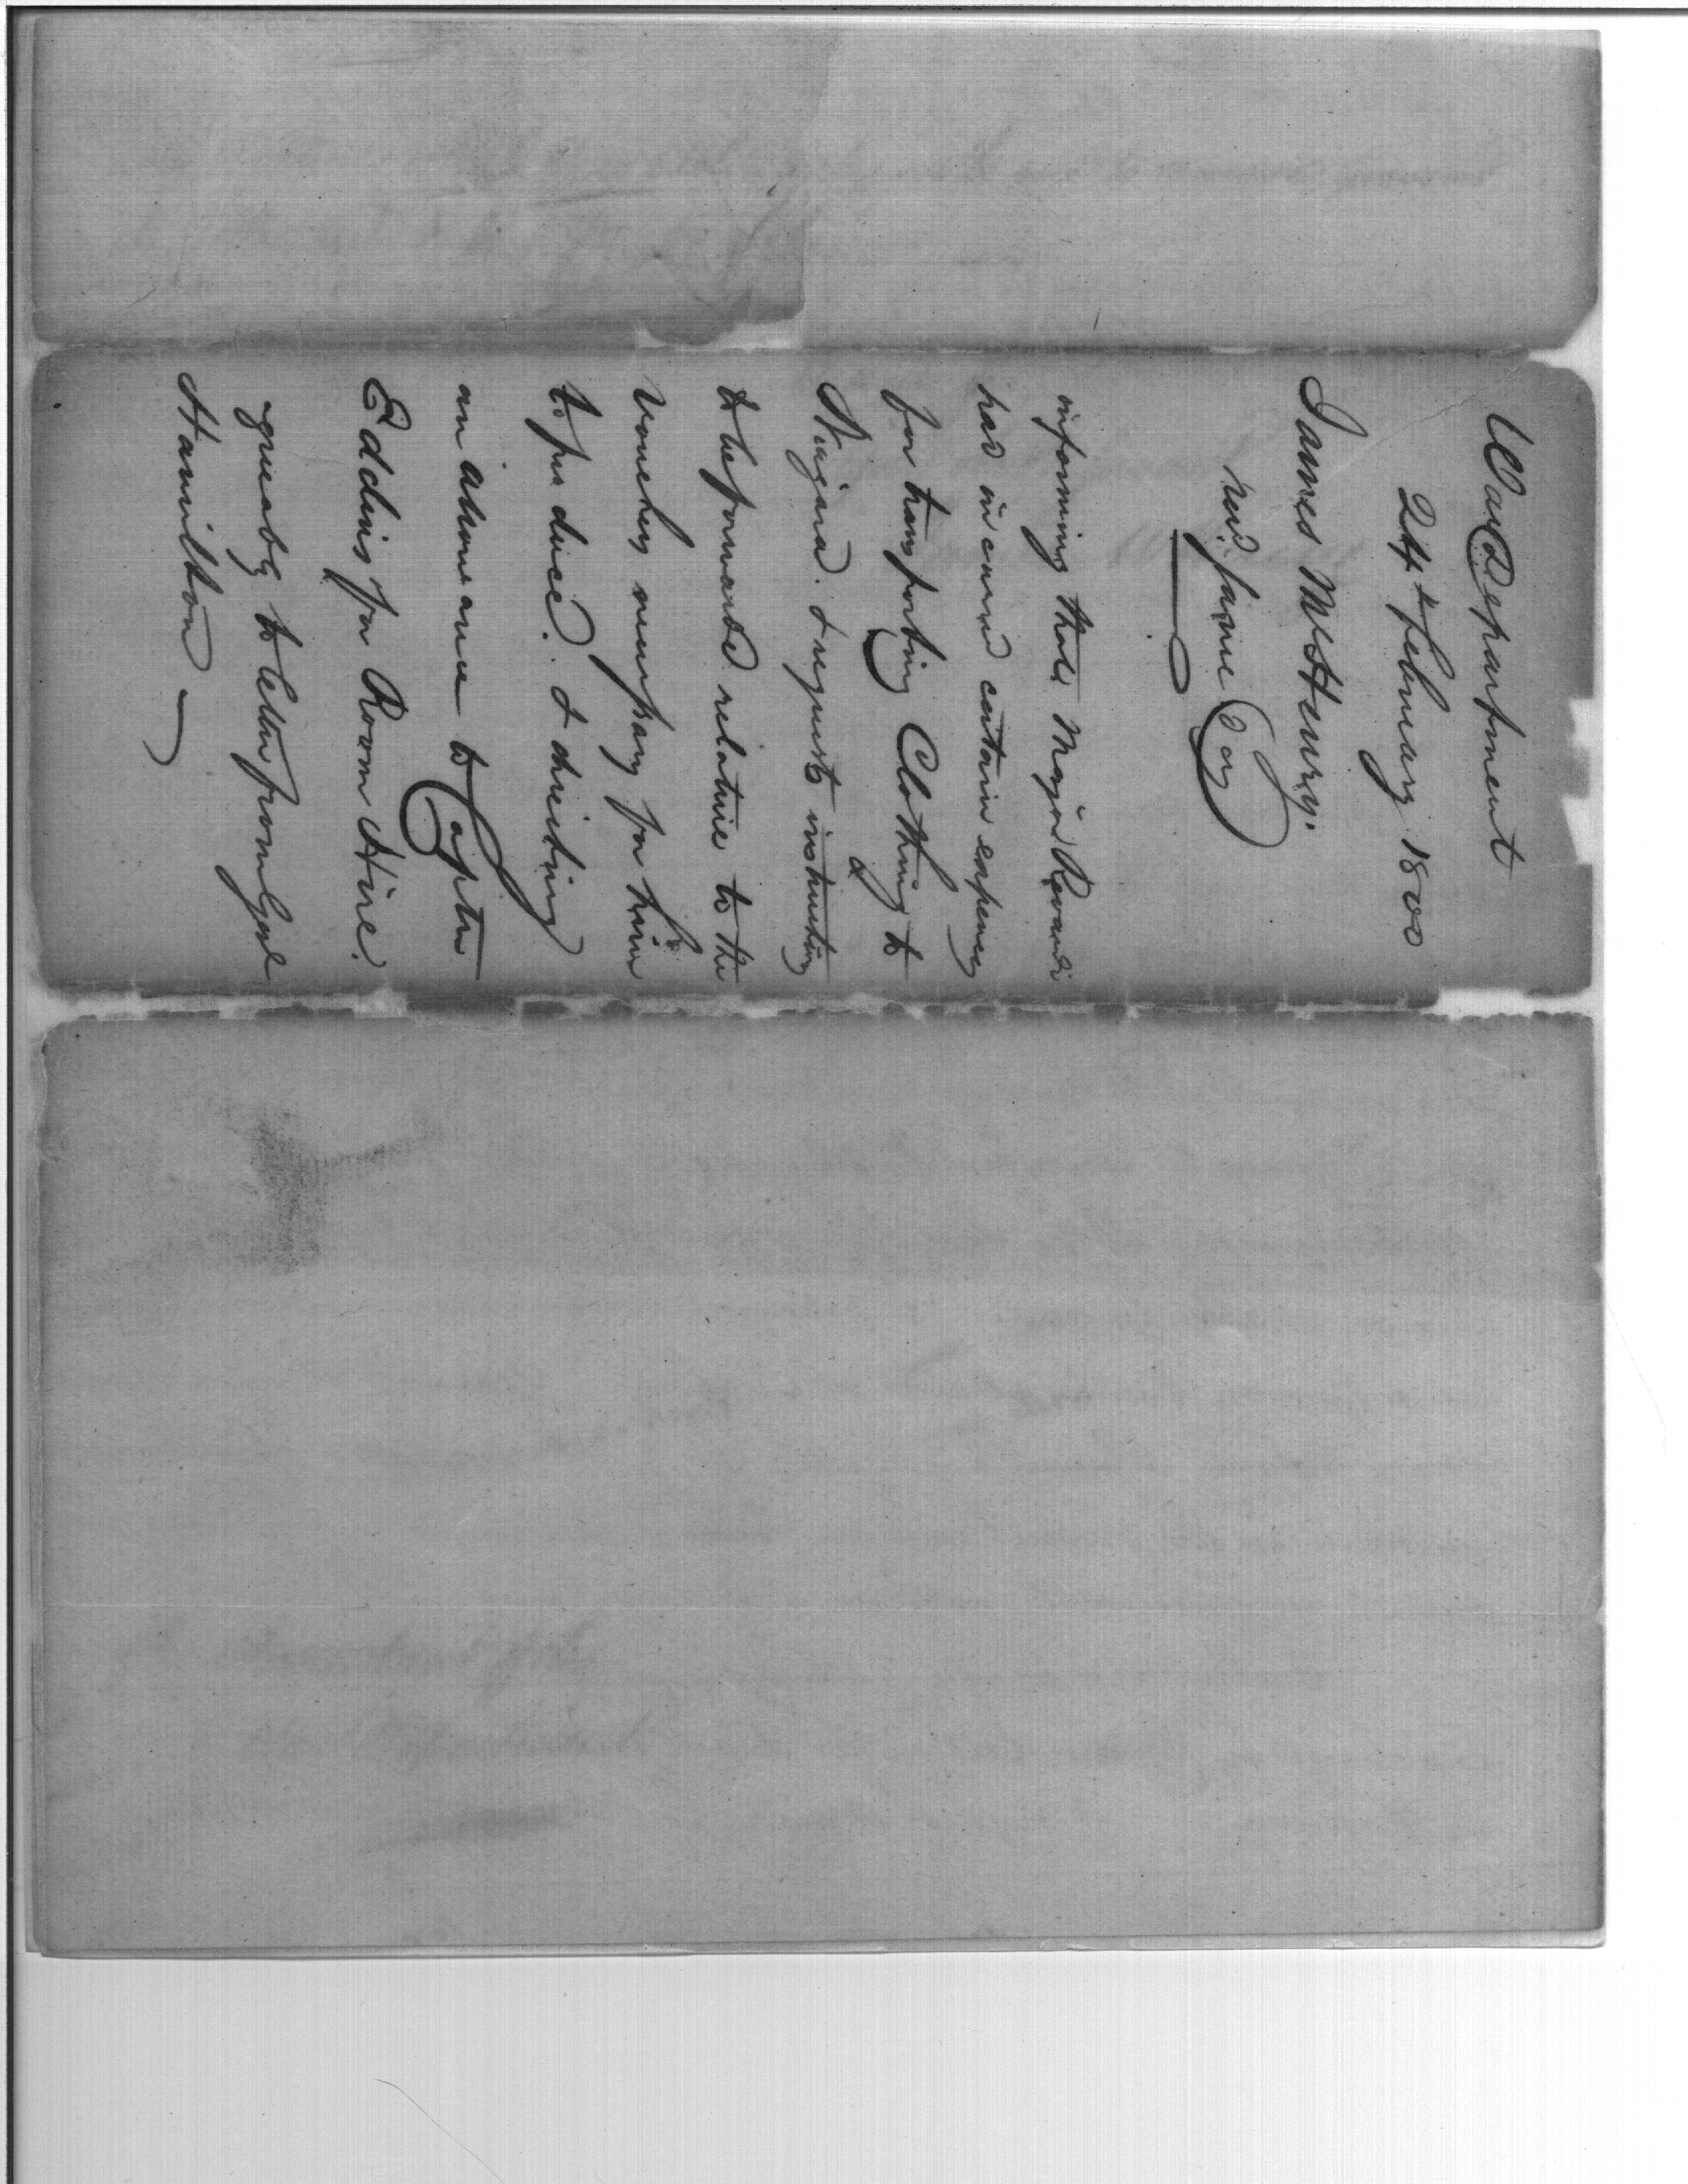 War Department
24th February 1800
James McHenry.
recd. same Day
informing that Major Rivardi
had incurred certain expences
for transporting Clothing to
Niagara. & requests instructions
to be forwarded relative to the
Vouchers necessary for him
to produce. & directing
an allowance to Captn
Eddins for Room Hire.
agreeably to letter from Genl
Hamilton —